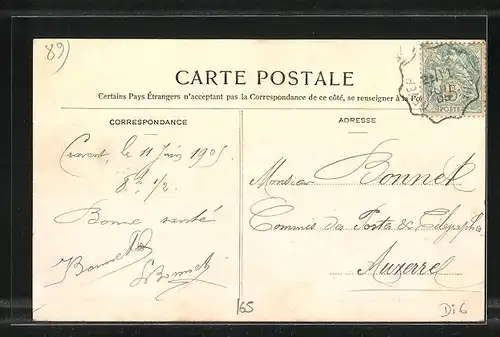 89)
CARTE POSTALE
Certains Pays Étrangers n'acceptant pas la Correspondance de ce côté, se renseigner à la Poste
CORRESPONDANCE
Cravant, le 11 Juin 1905
8h 1/2
Bonne santé
Bonnet
Bonnet
ADRESSE
Monsieur Bonnet
Commis des Postes & Télégraphes
Auxerre
165
Di 6